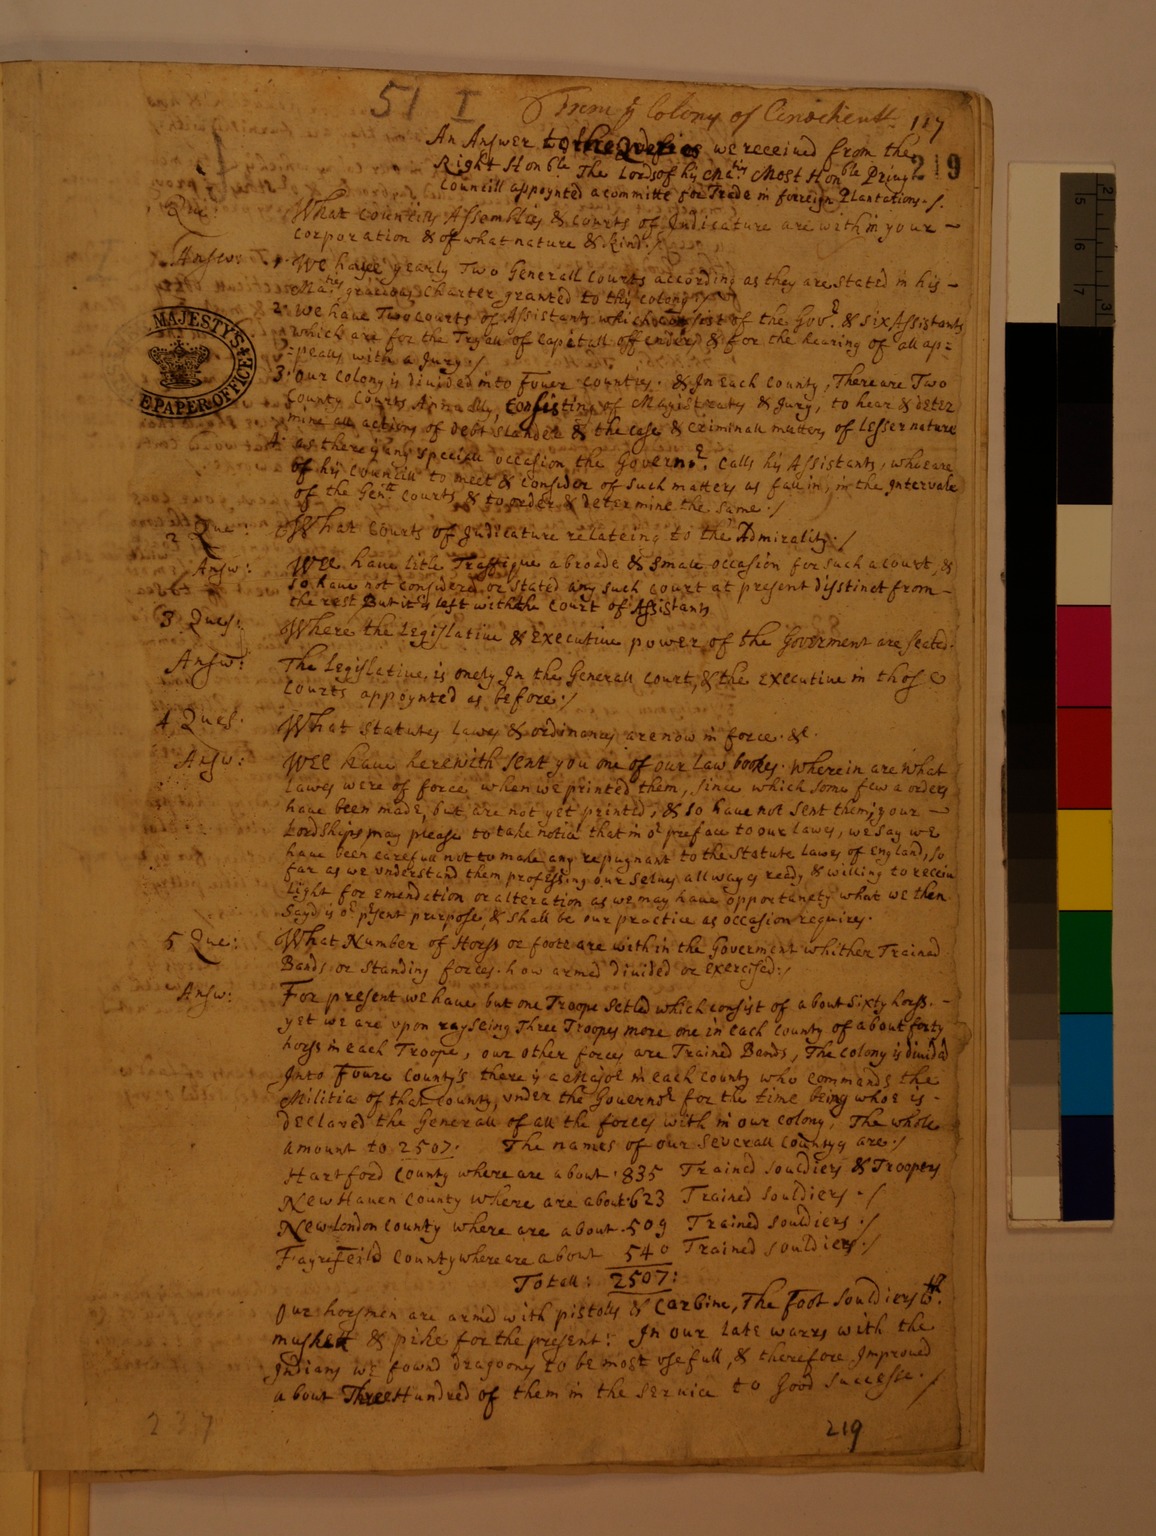 51 I
From ye Colony of Conechcutt. 117
An Answer to the queries we received from the
Right Honble The Lords of his Matis Most Honble Privy
219
Councill appoynted a committe for Trade in forreign Plantations./.
Que: What councills Assemblies & courts of Judicature are within your —
corporation & of what nature & kind./
Answ: 1. We have yearly Two Generall Courts according as they are stated in his —
Matties gracious Charter granted to this colony./
2. we have Two courts of Assistants which consist of the Govr. & six Assistants
which are for the Tryall of Capitall offenders & for the hearing of all ap=
peals with a Jury./
3. our Colony is divided into fouer counties. & In each county, There are Two
County Courts Annually, Consisting of Magistrates & Jury, to hear & deter
mine all actions of debt slander & the case & criminall matters of lesser nature
4. as there is any speciall occasion the Governor. calls his Assistants, who are
of his Councill to meet & consider of such matters as fall in, in the Intervale
of the Genll Courts & to order & determine the same./
2 Que: What Courts of Judicature relateing to the Admirality./
Answ: Wee have litle Traffique abroade & smale occasion for such a court, &
so have not considered or stated any such court at present disstinct from —
the rest, But it is left with the Court of Assistants
3 Ques: Where the Legislative & Executive power of the Goverment are seated.
Answ: The Legislative, is onely In the Generall Court, & the executive in those
Courts appoynted as before./
4 Ques. What statutes lawes & ordinances are now in force. &c.
Answ: Wee have herewith sent you one of our law bookes. wherein are what
lawes were of force when we printed them, since which some few a orders
have been made, but are not yet printed, & so have not sent them, your —
Lordships may please to take notice that in or preface to our lawes, we say we
have been carefull not to make any repugnant to the statute Lawes of England, so
far as we understand them professing our selves allwayes ready & willing to receive
light for emendation or alteration as we may have opportunety what we then
sayd is or present purpose, & shall be our practice as occasion requires.
5 Que: What Number of Horss or foote are within the Goverment whither Trained
Bands or standing forces. how armed divided or exercised:/
Answ: For present we have but one Troope setled which consist of about sixty horss. —
yet we are upon raysseing Three Troopes more one in each county of about forty
horss in each Troope, our other forces are Trained Bands, The colony is divided
Into Foure County's there is a Major in each county who commands the
Militia of that county, under the Governor for the time being whoe is -
declared the Generall of all the forces with in our colony, The whole
amount to 2507: The names of our severall Countys are./
Hartford County where are about .835 Trained souldiers & Troopers
New Haven County where are about. 623 Trained souldiers ./
New London county where are about .509 Trained souldiers ./
Fayrefeild County where are about 540 Trained souldiers./
Totall: 2507:
Our horsmen are armed with pistolls & Carbine, The foot souldiers wth
muskett & pike for the present: In our late warrs with the
Indians we found dragoons to be most usefull, & therefore Improved
about Three Hundred of them in the service to good successe./
237
219
MAJESTY'S
E PAPER OFFICE